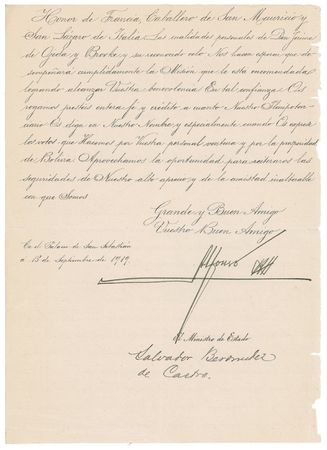 Honor de Francia, Caballero de San Mauricio y
San Lázaro de Italia. Las cualidades personales de Don Jaime
de Ojeda y Brooke y su reconocido celo Nos hacen esperar que de-
sempeñará cumplidamente la Misión que le está encomendada
logrando alcanzar Vuestra benevolencia. En tal confianza Os
rogamos prestéis entera fe y crédito a cuanto Nuestro Plenipoten-
ciario Os diga en Nuestro Nombre y especialmente cuando Os exprese
los votos que Hacemos por Vuestra personal ventura y por la prosperidad
de Bolivia. Aprovechamos la oportunidad para reiteraros las
seguridades de Nuestro alto aprecio y de la amistad inalterable
con que Somos
Grande y Buen Amigo
Vuestro Buen Amigo
En el Palacio de San Sebastián
a 15 de Septiembre de 1919.
Alfonso
El Ministro de Estado
Salvador Bermudez
de Castro.